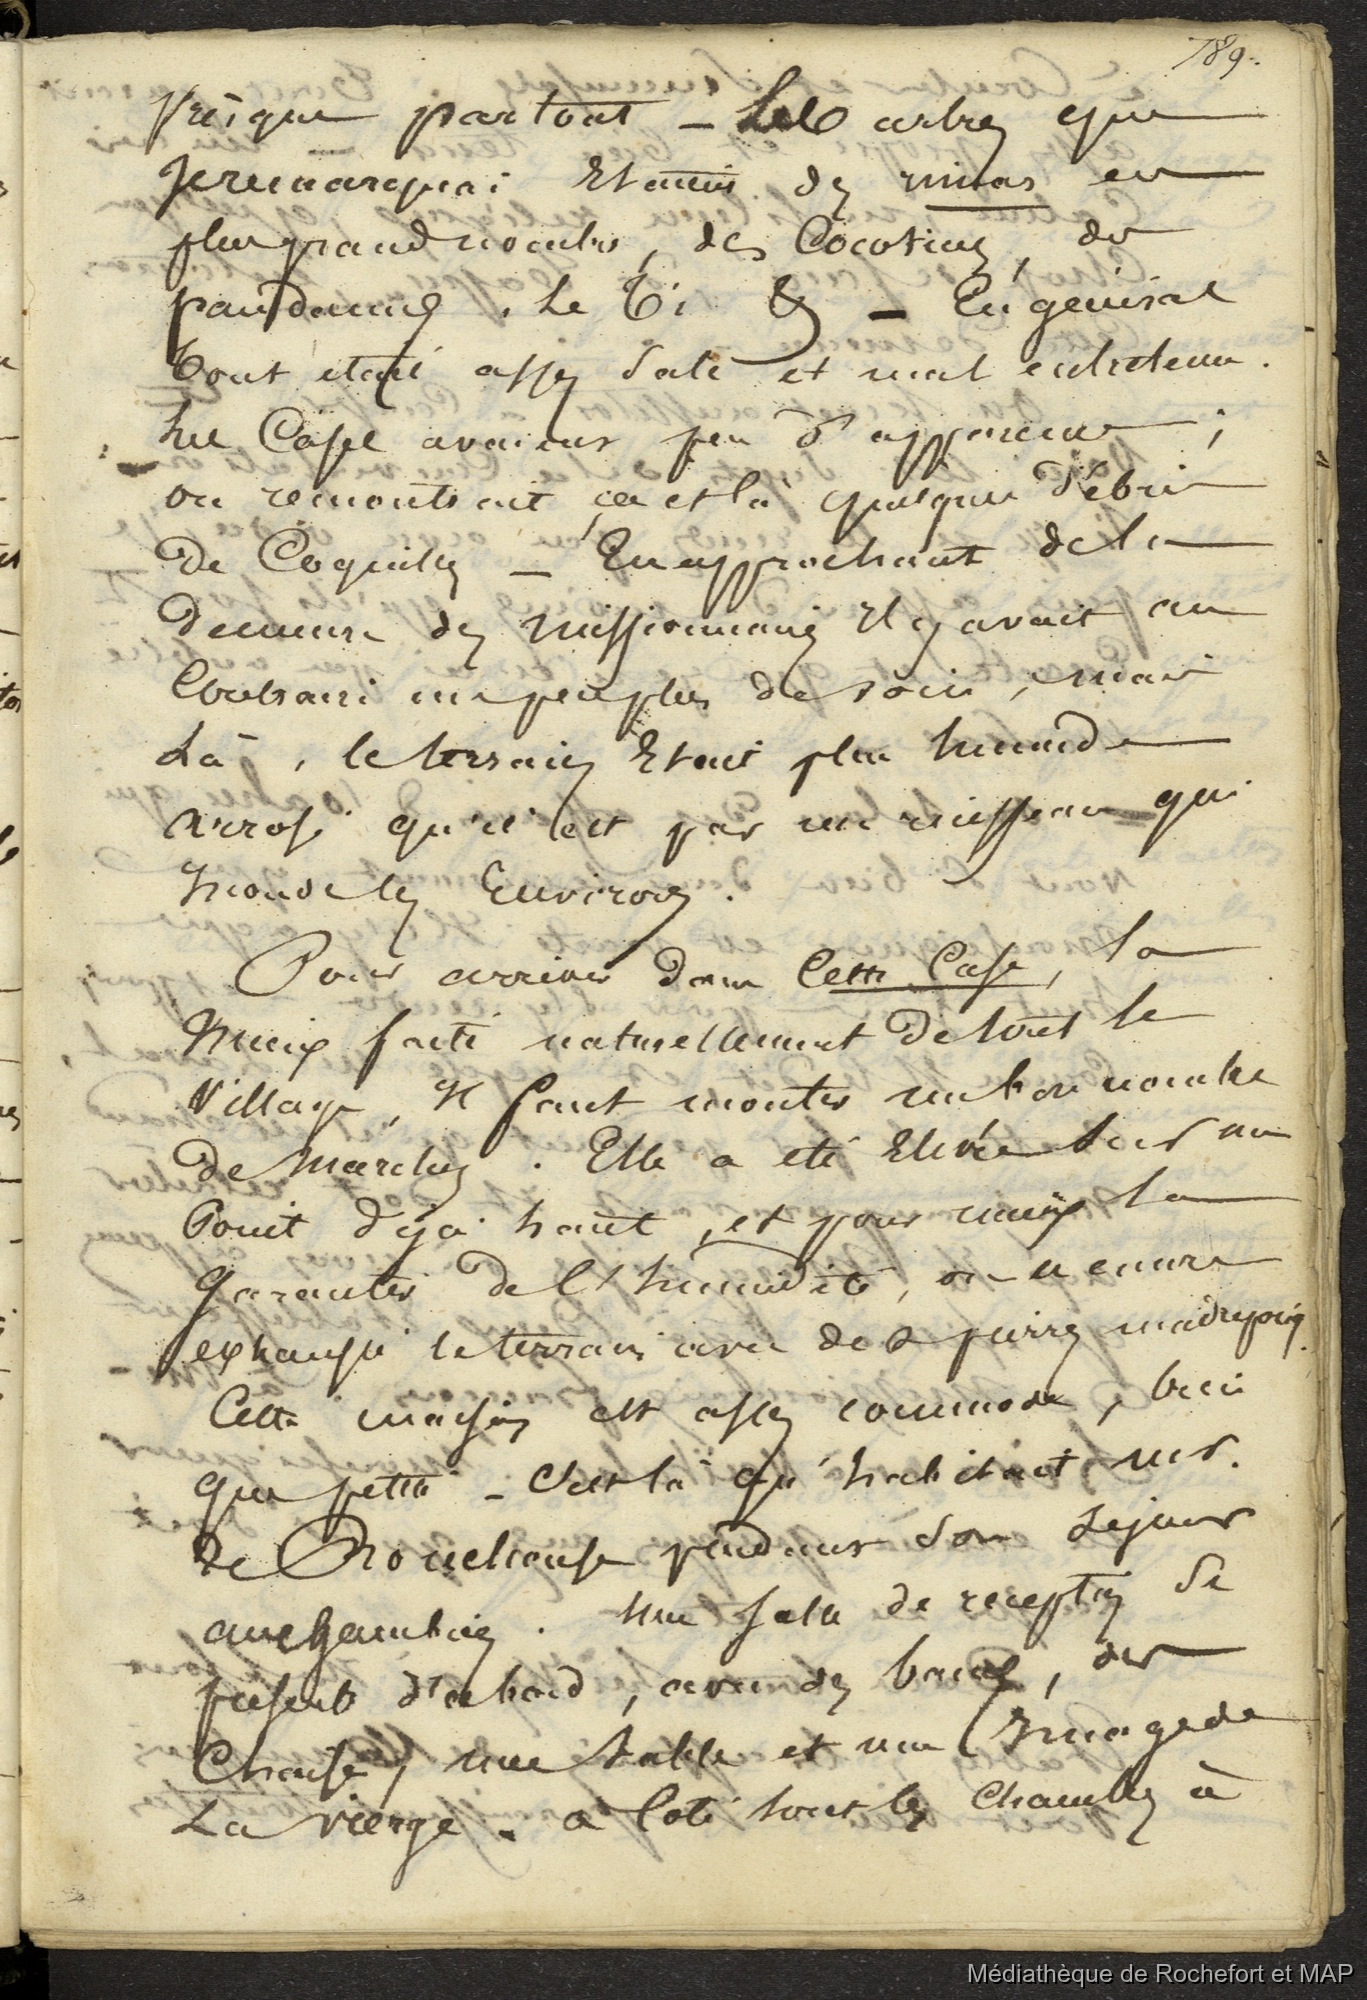 789.
Presque partout – Les arbres que
Je remarquai Etaient des mios en
plus grand nombre, des Cocotiers, des
pandanus, Le Ti &c – En général
tout était assez sale et mal entretenu.
Les Cases avaient peu d'apparence ;
on rencontrait çà et là quelques débris
de Coquilles – En approchant de la
demeure des missionnaires Il y avait au
Contraire un peu plus de soin, mais
Là, le terrain Etait plus humide
arrosé qu'il est par un ruisseau qui
Inonde les Environs.
Pour arriver dans Cette Case, la
Mieux faite naturellement de tout le
Village, Il faut monter un bon nombre
de marches. Elle a été Elevée sur un
Point déjà haut, et pour mieux la
garantir de l'humidité, on a encore
exhaussé le terrain avec des pierres madréporiq.
Cette maison est assez commode, bien
que petite – C'est là qu'habitait Mr.
de Rouchouse pendant son séjour
aux Gambier. Une salle de reception se
présente d'abord, avec des bancs, des
Chaises, une table et une Image de
La vierge – à Coté sont les Chambres à
Médiathèque de Rochefort et MAP